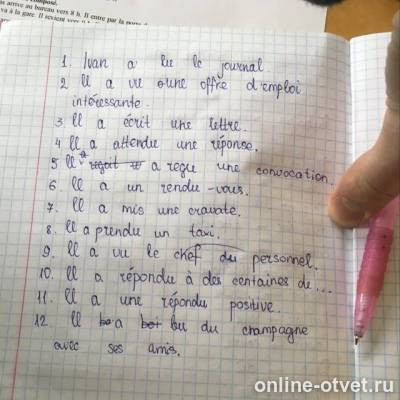 composé.
arrive au bureau vers 8 h. Il entre par la porte
va à la gare. Il revient vers
1. Ivan a lu le journal.
2 Il a vu une offre d'emploi
intéressante.
3 Il a écrit une lettre.
4 Il a attendu une réponse.
5 Il a regu une convocation.
6. Il a un rendu-vous.
7. Il a mis une cravate.
8. Il a prendu un taxi.
9. Il a vu le chef du personnel.
10. Il a répondu à des centaines de...
11. Il a une répondu positive.
12. Il a bu du champagne
avec ses amis.
online-otvet.ru